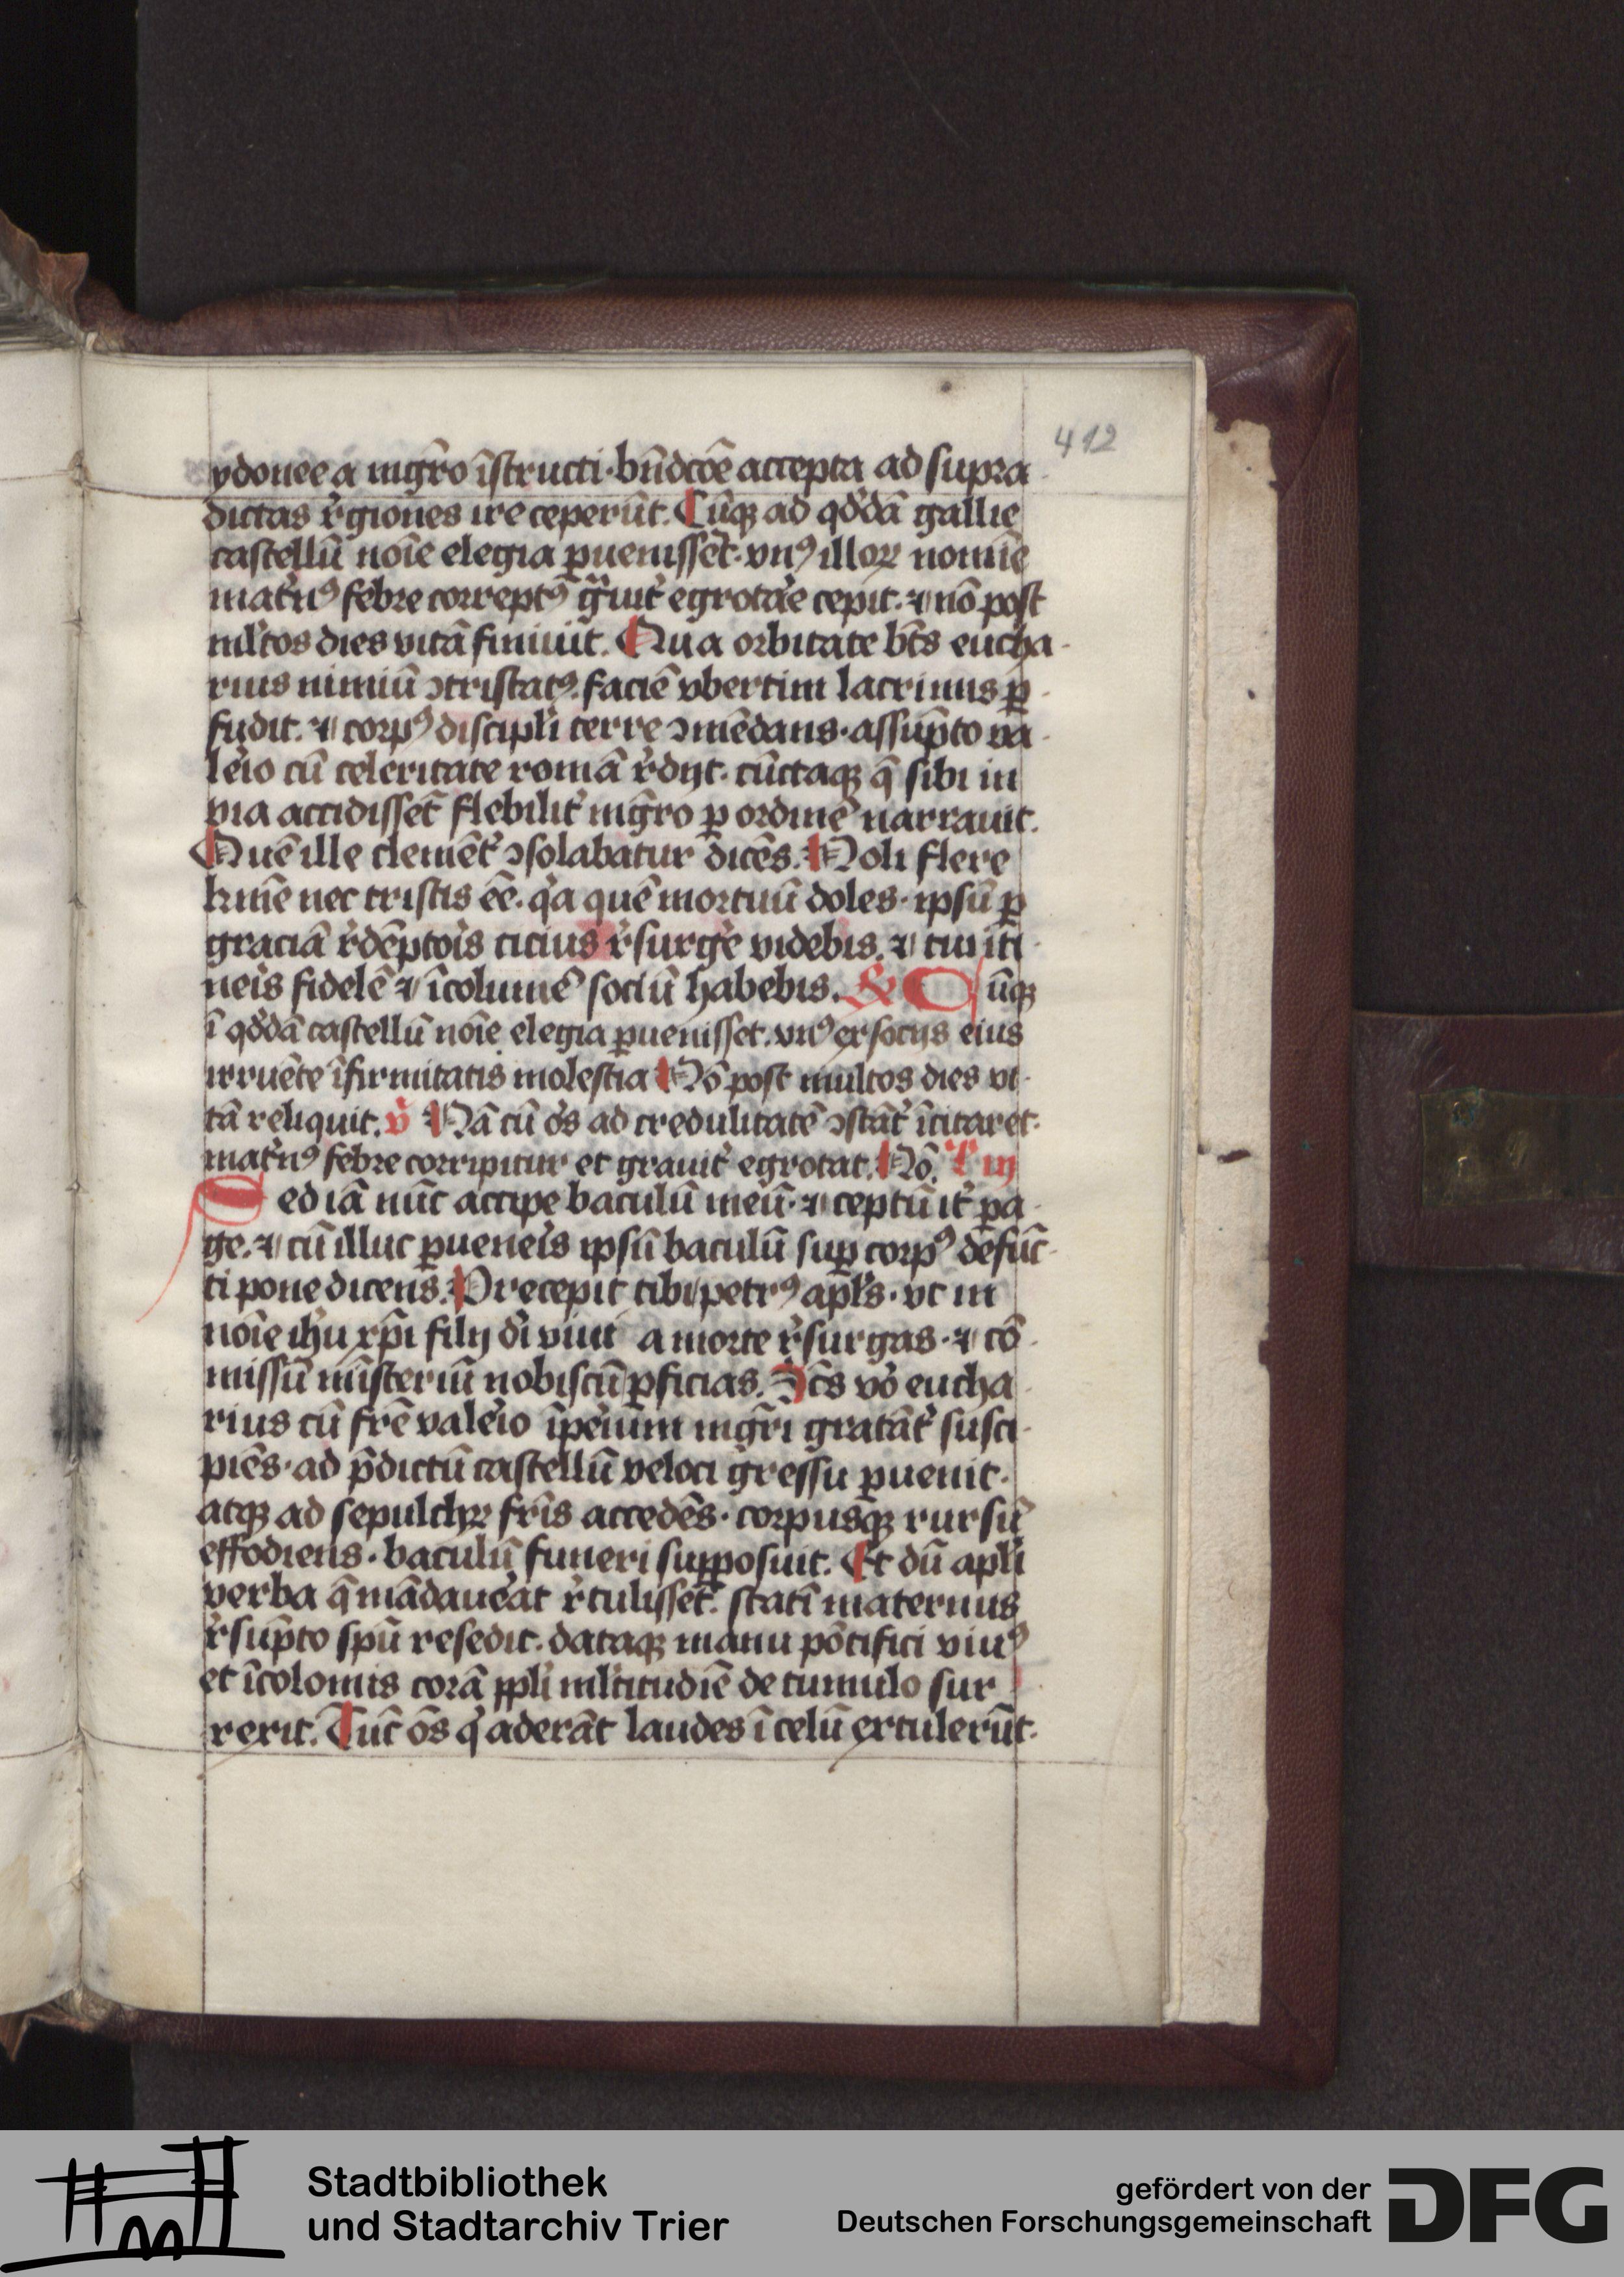 412
ydonee a mgr̄o īstructi · bn̄dcōe accepta ad supra
dictas r̓giones ire ceperūt. Cūqꝫ ad qd̓dā gallie
castellū noīe elegia ꝑuenissēt · vnꝰ illoꝝ nomīe
mat̓nꝰ febre correptꝰ gͣuit̓ egrotar̓e cepit · ⁊ nō post
ml̓tos dies vitā finiuit. Qua orbitate bt̄s eucha
rius nimiū ↄtristatꝰ faciē vbertim lacrimis ꝑ
fudit. ⁊ corpꝰ discipl̓i terre ↄmēdans · assūpto va
le̓io cū celeritate romā r̓dijt · cūctaqꝫ q̄ sibi in
via accidissēt flebilit̓ mgr̄o ꝑ ordinē narrauit.
Quē ille clemēt̓ ↄsolabatur dicēs. Noli flere
hmē nec tristis eē. qͥa quē mortuū doles · ipsū ꝑ
graciā r̓dēptoīs cicius r̓surge̓ videbis. ⁊ tui iti
neīs fidelē ⁊ īcolumē sociū habebis. R Cūqꝫ
ī qd̓dā castellū noīe elegia ꝑuenisset. vnꝰ ex socijs eius
irruēte īfirmitatis molestia Nō post multos dies vi
tā reliquit. v̓ Nā cū oēs ad credulitatē ↄstāt̓ īcitaret
mat̓nꝰ febre corripitur et grauit̓ egrotat. Nō. L̓ iij
Sed iā nūc accipe baculū meū · ⁊ ceptū it̓ ꝑa
ge. ⁊ cū illuc ꝑuene̓is ipsū baculū suꝑ corpꝰ defūc
ti pone dicens. Precepit tibi petrꝰ apl̓s · vt in
noīe ih̓u xp̄i filij di̓ viui a morte r̓surgas · ⁊ cō
missū mīsteriū nobiscū ꝑficias. Scs̄ vo̓ eucha
rius cū fr̄e vale̓io īpe̓ium mgr̄i gratāt̓ susci
piēs · ad p̄dictū castellū veloci gressu ꝑuenit ·
atqꝫ ad sepulchꝝ fr̄is accedēs · corpusqꝫ rursū
effodiens · baculū funeri suꝑposuit. Et dū apl̓i
verba q̄ mādaue̓at r̓tulisset · statī maternus
r̓sūpto spū resedit · dataqꝫ manu pōtifici viuꝰ
et īcolomis corā ppl̓i ml̓titudīe de tumulo sur
rexit. Tūc oēs qͥ aderāt laudes ī celū extulerūt ·
Stadtbibliothek
und Stadtarchiv Trier
gefördert von der
Deutschen Forschungsgemeinschaft
DFG